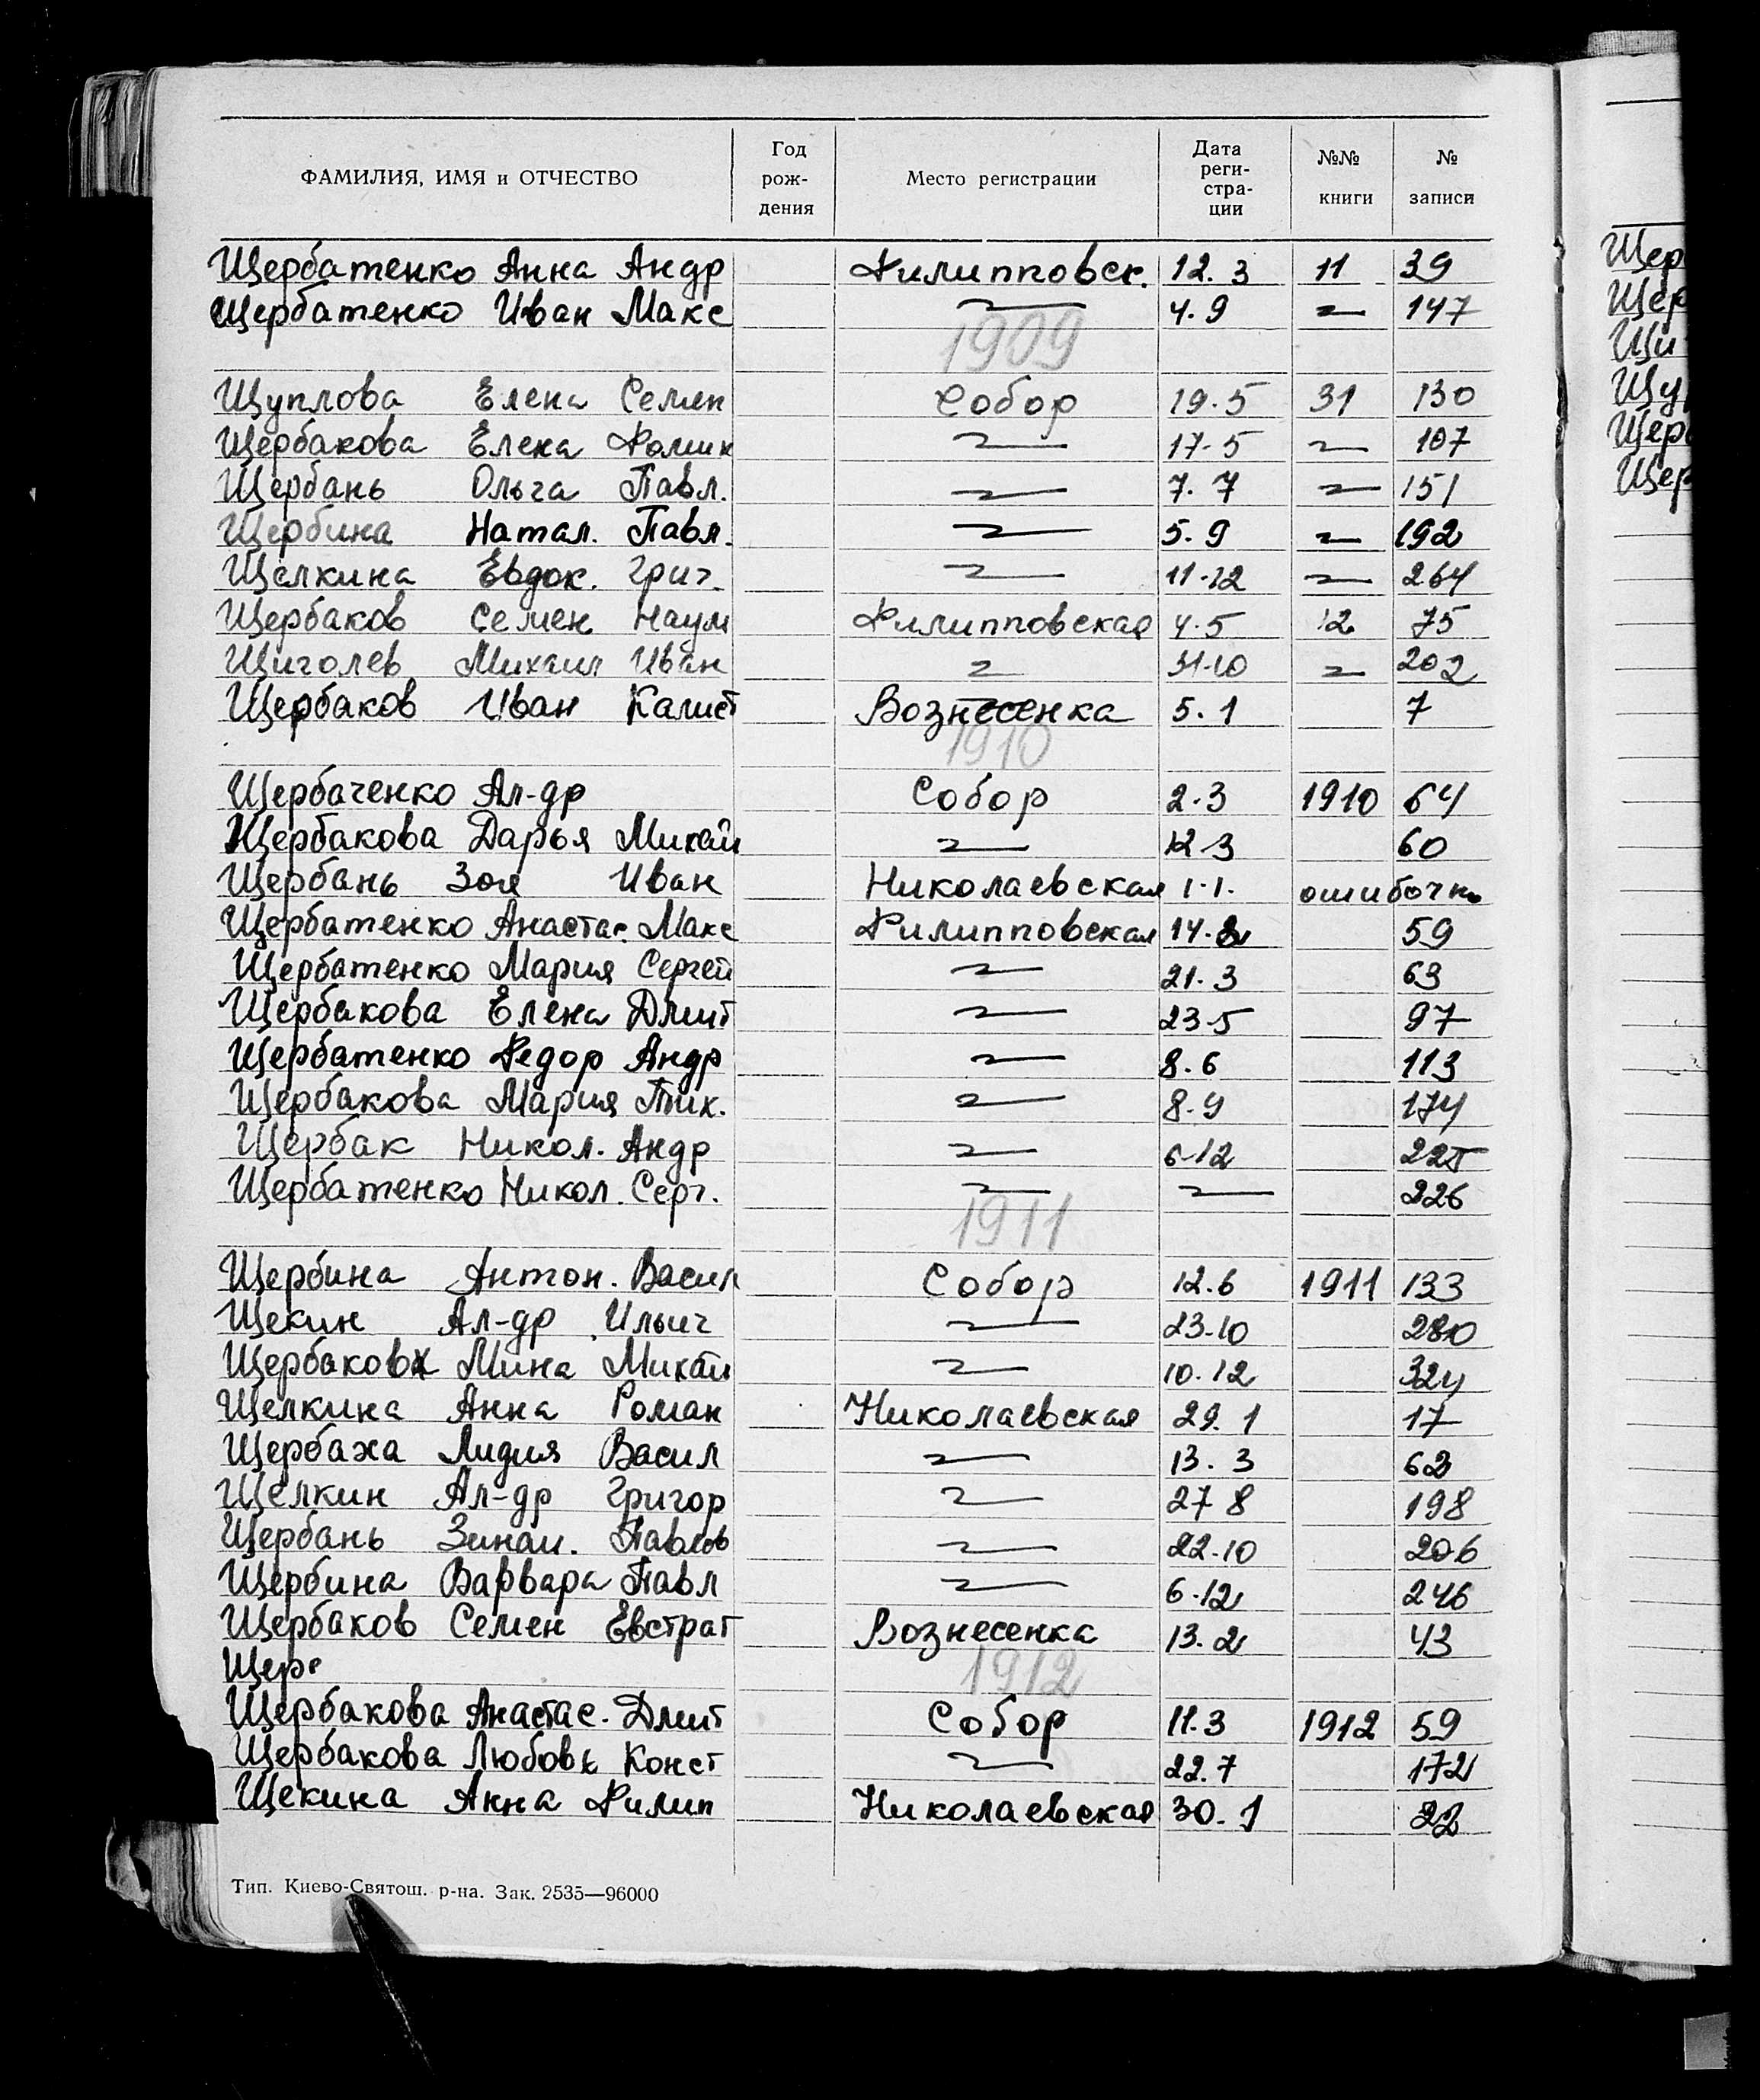 ФАМИЛИЯ, ИМЯ и ОТЧЕСТВО Год рож- дения Место регистрации Дата реги- стра- ции №№ книги № записи
Щербатенко Анна Андр Филипповск. 12.3 11 39
Щербатенко Иван Макс 4.9 147
1909
Щуплова Елена Семен Собор 19.5 31 130
Щербакова Елена Фомин 17-5 107
Щербань Ольга Павл. 7.7 151
Щербина Натал. Павл. 5.9 192
Щелкина Евдок. Григ. 11-12 264
Щербаков Семен Наум Филипповская 4.5 12 75
Щиголев Михаил Иван 31-10 202
Щербаков Иван Калист Вознесенка 5.1 7
1910
Щербаченко Ал-др Собор 2.3 1910 64
Щербакова Дарья Михай 12-3 60
Щербань Зоя Иван Николаевская 1.1. ошибочно
Щербатенко Анастас. Макс Филипповская 14.2 59
Щербатенко Мария Сергей 21.3 63
Щербакова Елена Дмит 23-5 97
Щербатенко Федор Андр 8.6 113
Щербакова Мария Тих. 8.9 174
Щербак Никол. Андр 6-12 225
Щербатенко Никол. Серг. 226
1911
Щербина Антон. Васил Собор 12.6 1911 133
Щекин Ал-др Ильич 23-10 280
Щербаков Мина Михай 10.12 324
Щелкина Анна Роман Николаевская 29.1 17
Щербаха Лидия Васил 13.3 62
Щелкин Ал-др Григор 27 8 198
Щербань Зинаи. Павлов 22-10 206
Щербина Варвара Павл 6-12 246
Щербаков Семен Евстрат Вознесенка 13.2 43
Щер
1912
Щербакова Анастас. Дмит Собор 11.3 1912 59
Щербакова Любовь Конст 22.7 172
Щекина Анна Филип Николаевская 30.1 22
Тип. Киево-Святош. р-на. Зак. 2535—96000
Щер
Щер
Щи
Щу
Щер
Щер